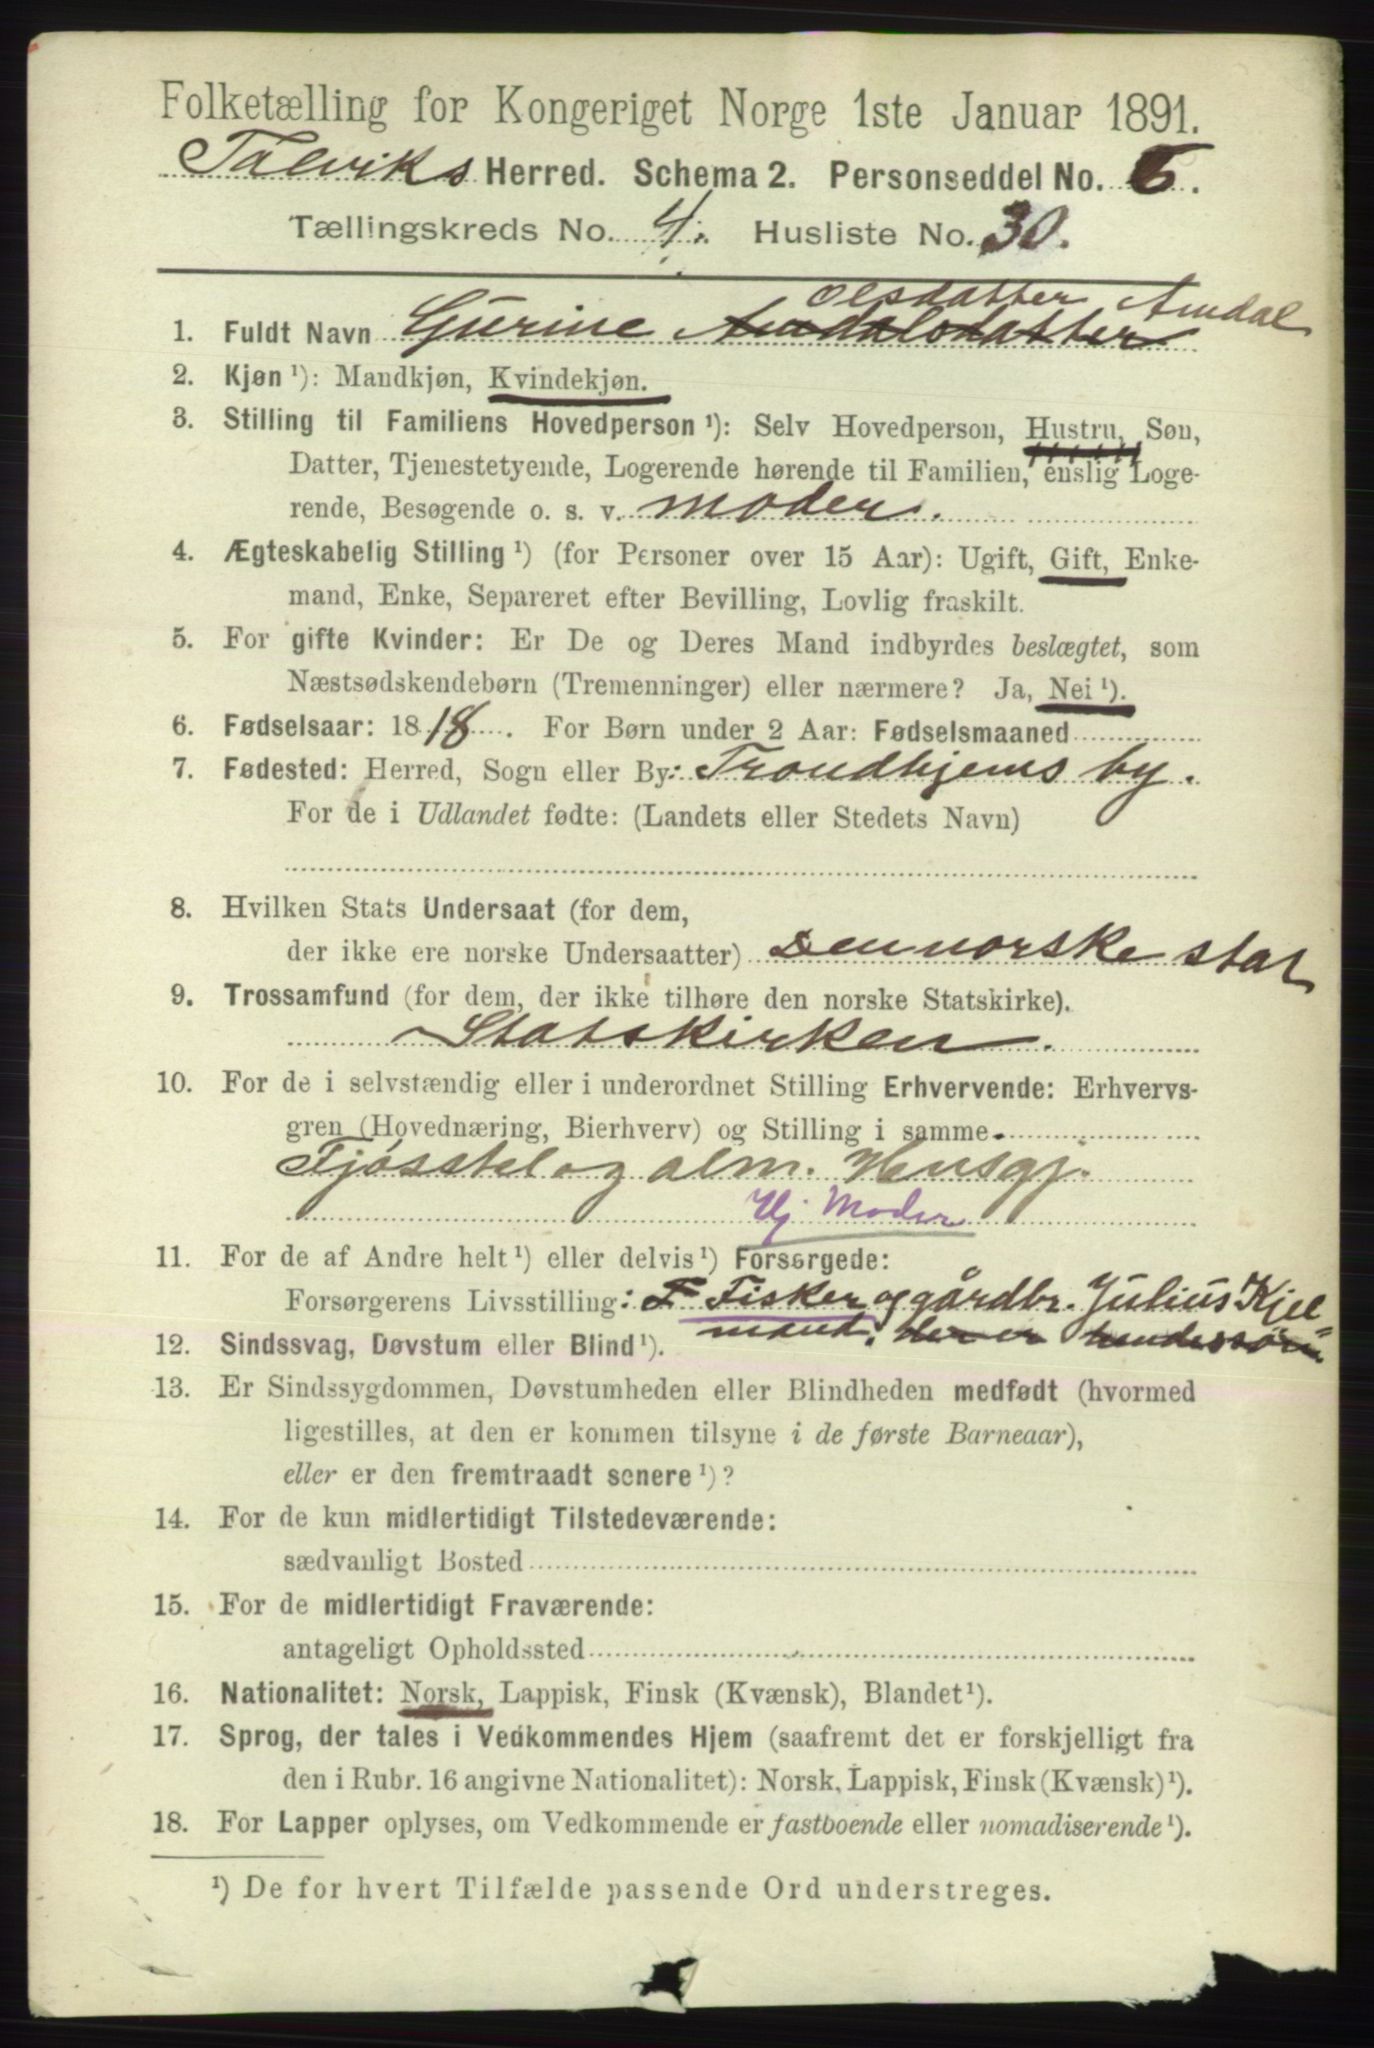 Folketælling for Kongeriget Norge 1ste Januar 1891.
Talviks Herred. Schema 2. Personseddel No. 6.
Tællingskreds No. 4. Husliste No. 30.
olsdatter Amdal
1. Fuldt Navn Gurine Amdalsdatter
2. Kjøn ¹): Mandkjøn, Kvindekjøn.
3. Stilling til Familiens Hovedperson ¹): Selv Hovedperson, Hustru, Søn,
Datter, Tjenestetyende, Logerende hørende til Familien, enslig Loge-
rende, Besøgende o. s. v. moder.
4. Ægteskabelig Stilling ¹) (for Personer over 15 Aar): Ugift, Gift, Enke-
mand, Enke, Separeret efter Bevilling, Lovlig fraskilt.
5. For gifte Kvinder: Er De og Deres Mand indbyrdes beslægtet, som
Næstsødskendebørn (Tremenninger) eller nærmere? Ja, Nei ¹).
6. Fødselsaar: 1818. For Børn under 2 Aar: Fødselsmaaned
7. Fødested: Herred, Sogn eller By: Trondhjems by.
For de i Udlandet fødte: (Landets eller Stedets Navn)
8. Hvilken Stats Undersaat (for dem,
der ikke ere norske Undersaatter) Den norske stat
9. Trossamfund (for dem, der ikke tilhøre den norske Statskirke).
Statskirken.
10. For de i selvstændig eller i underordnet Stilling Erhvervende: Erhvervs-
gren (Hovednæring, Bierhverv) og Stilling i samme
Fjøsstel og alm. Husgj.
Hj Moder
11. For de af Andre helt ¹) eller delvis ¹) Forsørgede:
Forsørgerens Livsstilling: F Fisker og gårdbr. Julius Kjel=
mand, der er hendes søn
12. Sindssvag, Døvstum eller Blind ¹).
13. Er Sindssygdommen, Døvstumheden eller Blindheden medfødt (hvormed
ligestilles, at den er kommen tilsyne i de første Barneaar),
eller er den fremtraadt senere ¹)?
14. For de kun midlertidigt Tilstedeværende:
sædvanligt Bosted
15. For de midlertidigt Fraværende:
antageligt Opholdssted
16. Nationalitet: Norsk, Lappisk, Finsk (Kvænsk), Blandet ¹).
17. Sprog, der tales i Vedkommendes Hjem (saafremt det er forskjelligt fra
den i Rubr. 16 angivne Nationalitet): Norsk, Lappisk, Finsk (Kvænsk) ¹).
18. For Lapper oplyses, om Vedkommende er fastboende eller nomadiserende ¹).
¹) De for hvert Tilfælde passende Ord understreges.